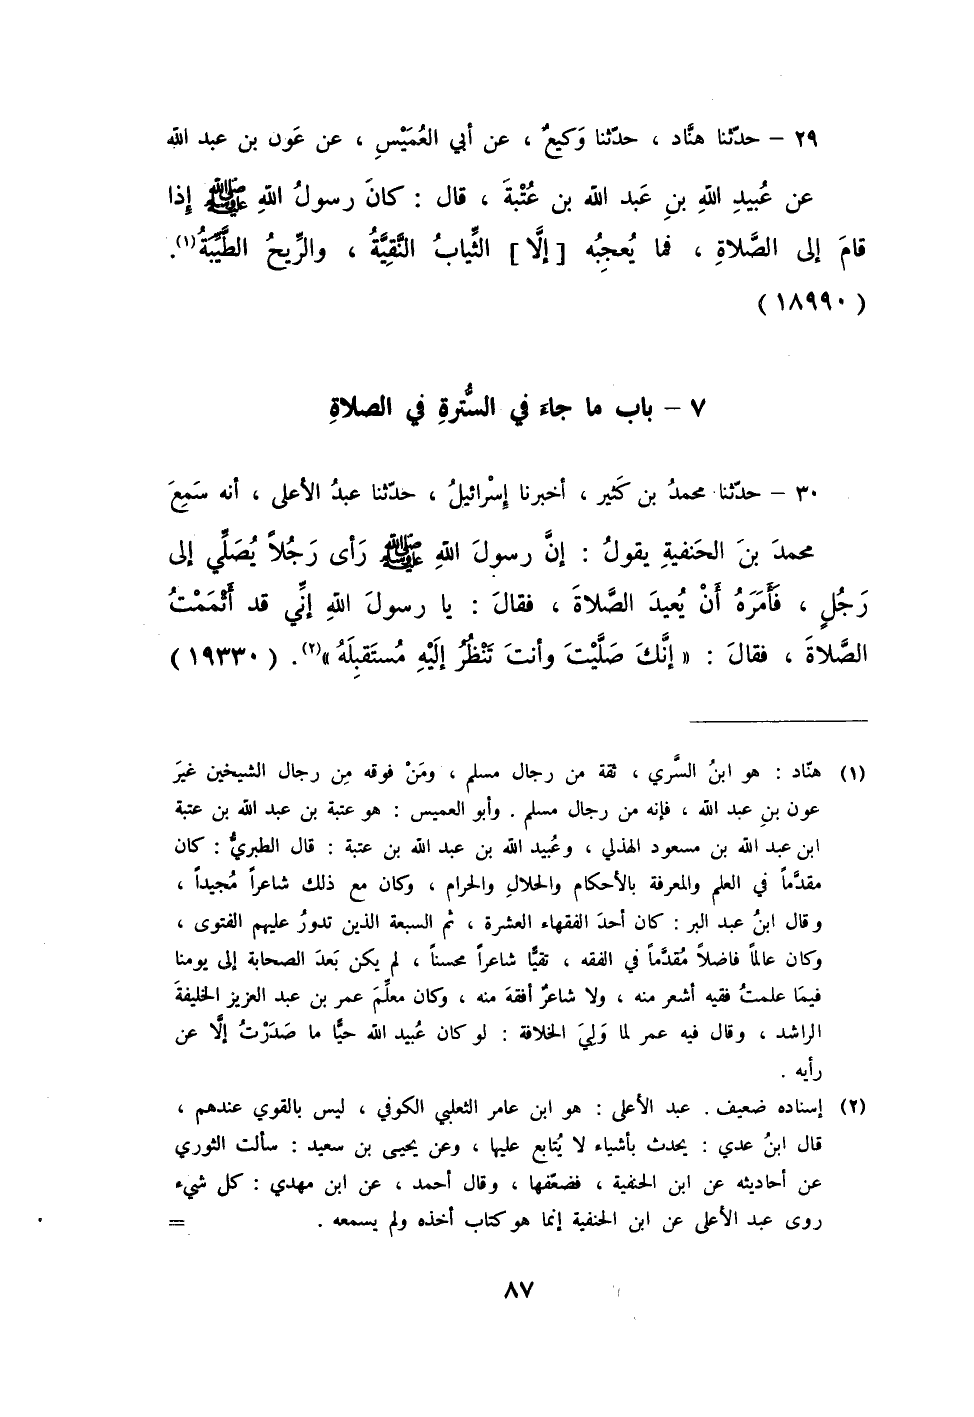 ٢٩ – حدّثنا هنَّاد ، حدّثنا وَكيعٌ ، عن أبي العُمَيْسِ ، عن عَون بن عبد الله
عن عُبيدِ اللهِ بنِ عَبد الله بن عُتْبةَ ، قال : كانَ رسولُ اللهِ ﷺ إذا
قامَ إلى الصَّلاةِ ، فما يُعجِبُه [ إلَّا ] الثِّيابُ النَّقِيَّةُ ، والرِّيحُ الطَّيِّبَةُ(١).
( ١٨٩٩٠ )
٧ – باب ما جاءَ في السُّترةِ في الصلاةِ
٣٠ – حدّثنا محمدُ بن كَثير ، أخبرنا إسْرائيلُ ، حدّثنا عبدُ الأعلى ، أنه سَمِعَ
محمدَ بنَ الحَنفيةِ يقولُ : إنَّ رسولَ اللهِ ﷺ رَأى رَجُلاً يُصَلِّي إلى
رَجُلٍ ، فَأَمَرَهُ أَنْ يُعيدَ الصَّلاةَ ، فقالَ : يا رسولَ اللهِ إنِّي قد أَتْمَمْتُ
الصَّلاةَ ، فقالَ : « إنَّكَ صَلَّيْتَ وأنتَ تَنْظُرُ إلَيْهِ مُستَقبِلَهُ »(٢). ( ١٩٣٣٠ )
(١) هنّاد : هو ابنُ السَّري ، ثقة من رجال مسلم ، ومَنْ فوقه مِن رجال الشيخين غيرَ
عون بنِ عبد الله ، فإنه من رجال مسلم . وأبو العميس : هو عتبة بن عبد الله بن عتبة
ابن عبد الله بن مسعود الهذلي ، وعُبيد الله بن عبد الله بن عتبة : قال الطبريُّ : كان
مقدَّماً في العلم والمعرفة بالأحكام والحلالِ والحرام ، وكان مع ذلك شاعراً مُجيداً ،
وقال ابنُ عبد البر : كان أحدَ الفقهاء العشرة ، ثم السبعة الذين تدورُ عليهم الفتوى ،
وكان عالماً فاضلاً مُقدَّماً في الفقه ، تقيًّا شاعراً محسناً ، لم يكن بَعدَ الصحابة إلى يومنا
فيمَا علمتُ فقيه أشعر منه ، ولا شاعرٌ أفقهَ منه ، وكان معلِّمَ عمر بن عبد العزيز الخليفةَ
الراشد ، وقال فيه عمر لما وَلِيَ الخلافة : لو كان عُبيد الله حيًّا ما صَدَرْتُ إلَّا عن
رأيه .
(٢) إسناده ضعيف . عبد الأعلى : هو ابن عامر الثعلبي الكوفي ، ليس بالقوي عندهم ،
قال ابنُ عدي : يحدث بأشياء لا يُتابع عليها ، وعن يحيى بن سعيد : سألت الثوري
عن أحاديثه عن ابن الحنفية ، فضعّفها ، وقال أحمد ، عن ابن مهدي : كل شيء
روى عبد الأعلى عن ابن الحنفية إنما هو كتاب أخذه ولم يسمعه . =
٨٧